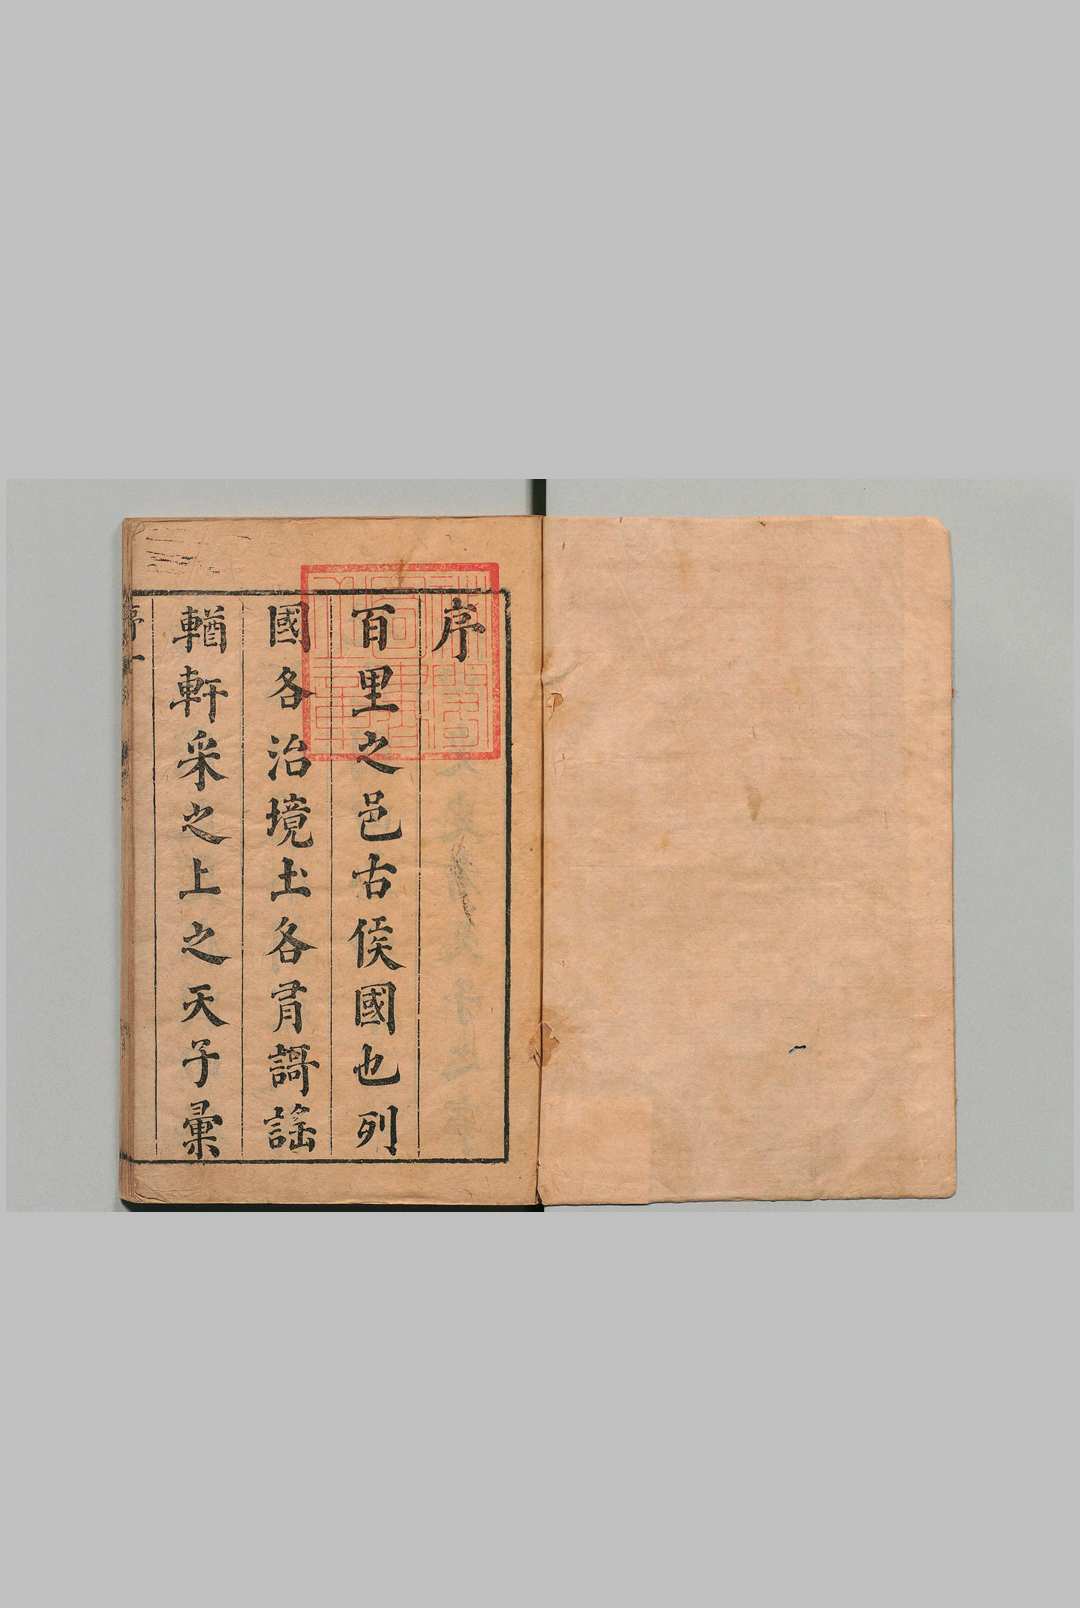 序
百里之邑古侯國也列
國各治境土各有謌謠
輶軒采之上之天子彙
序 一